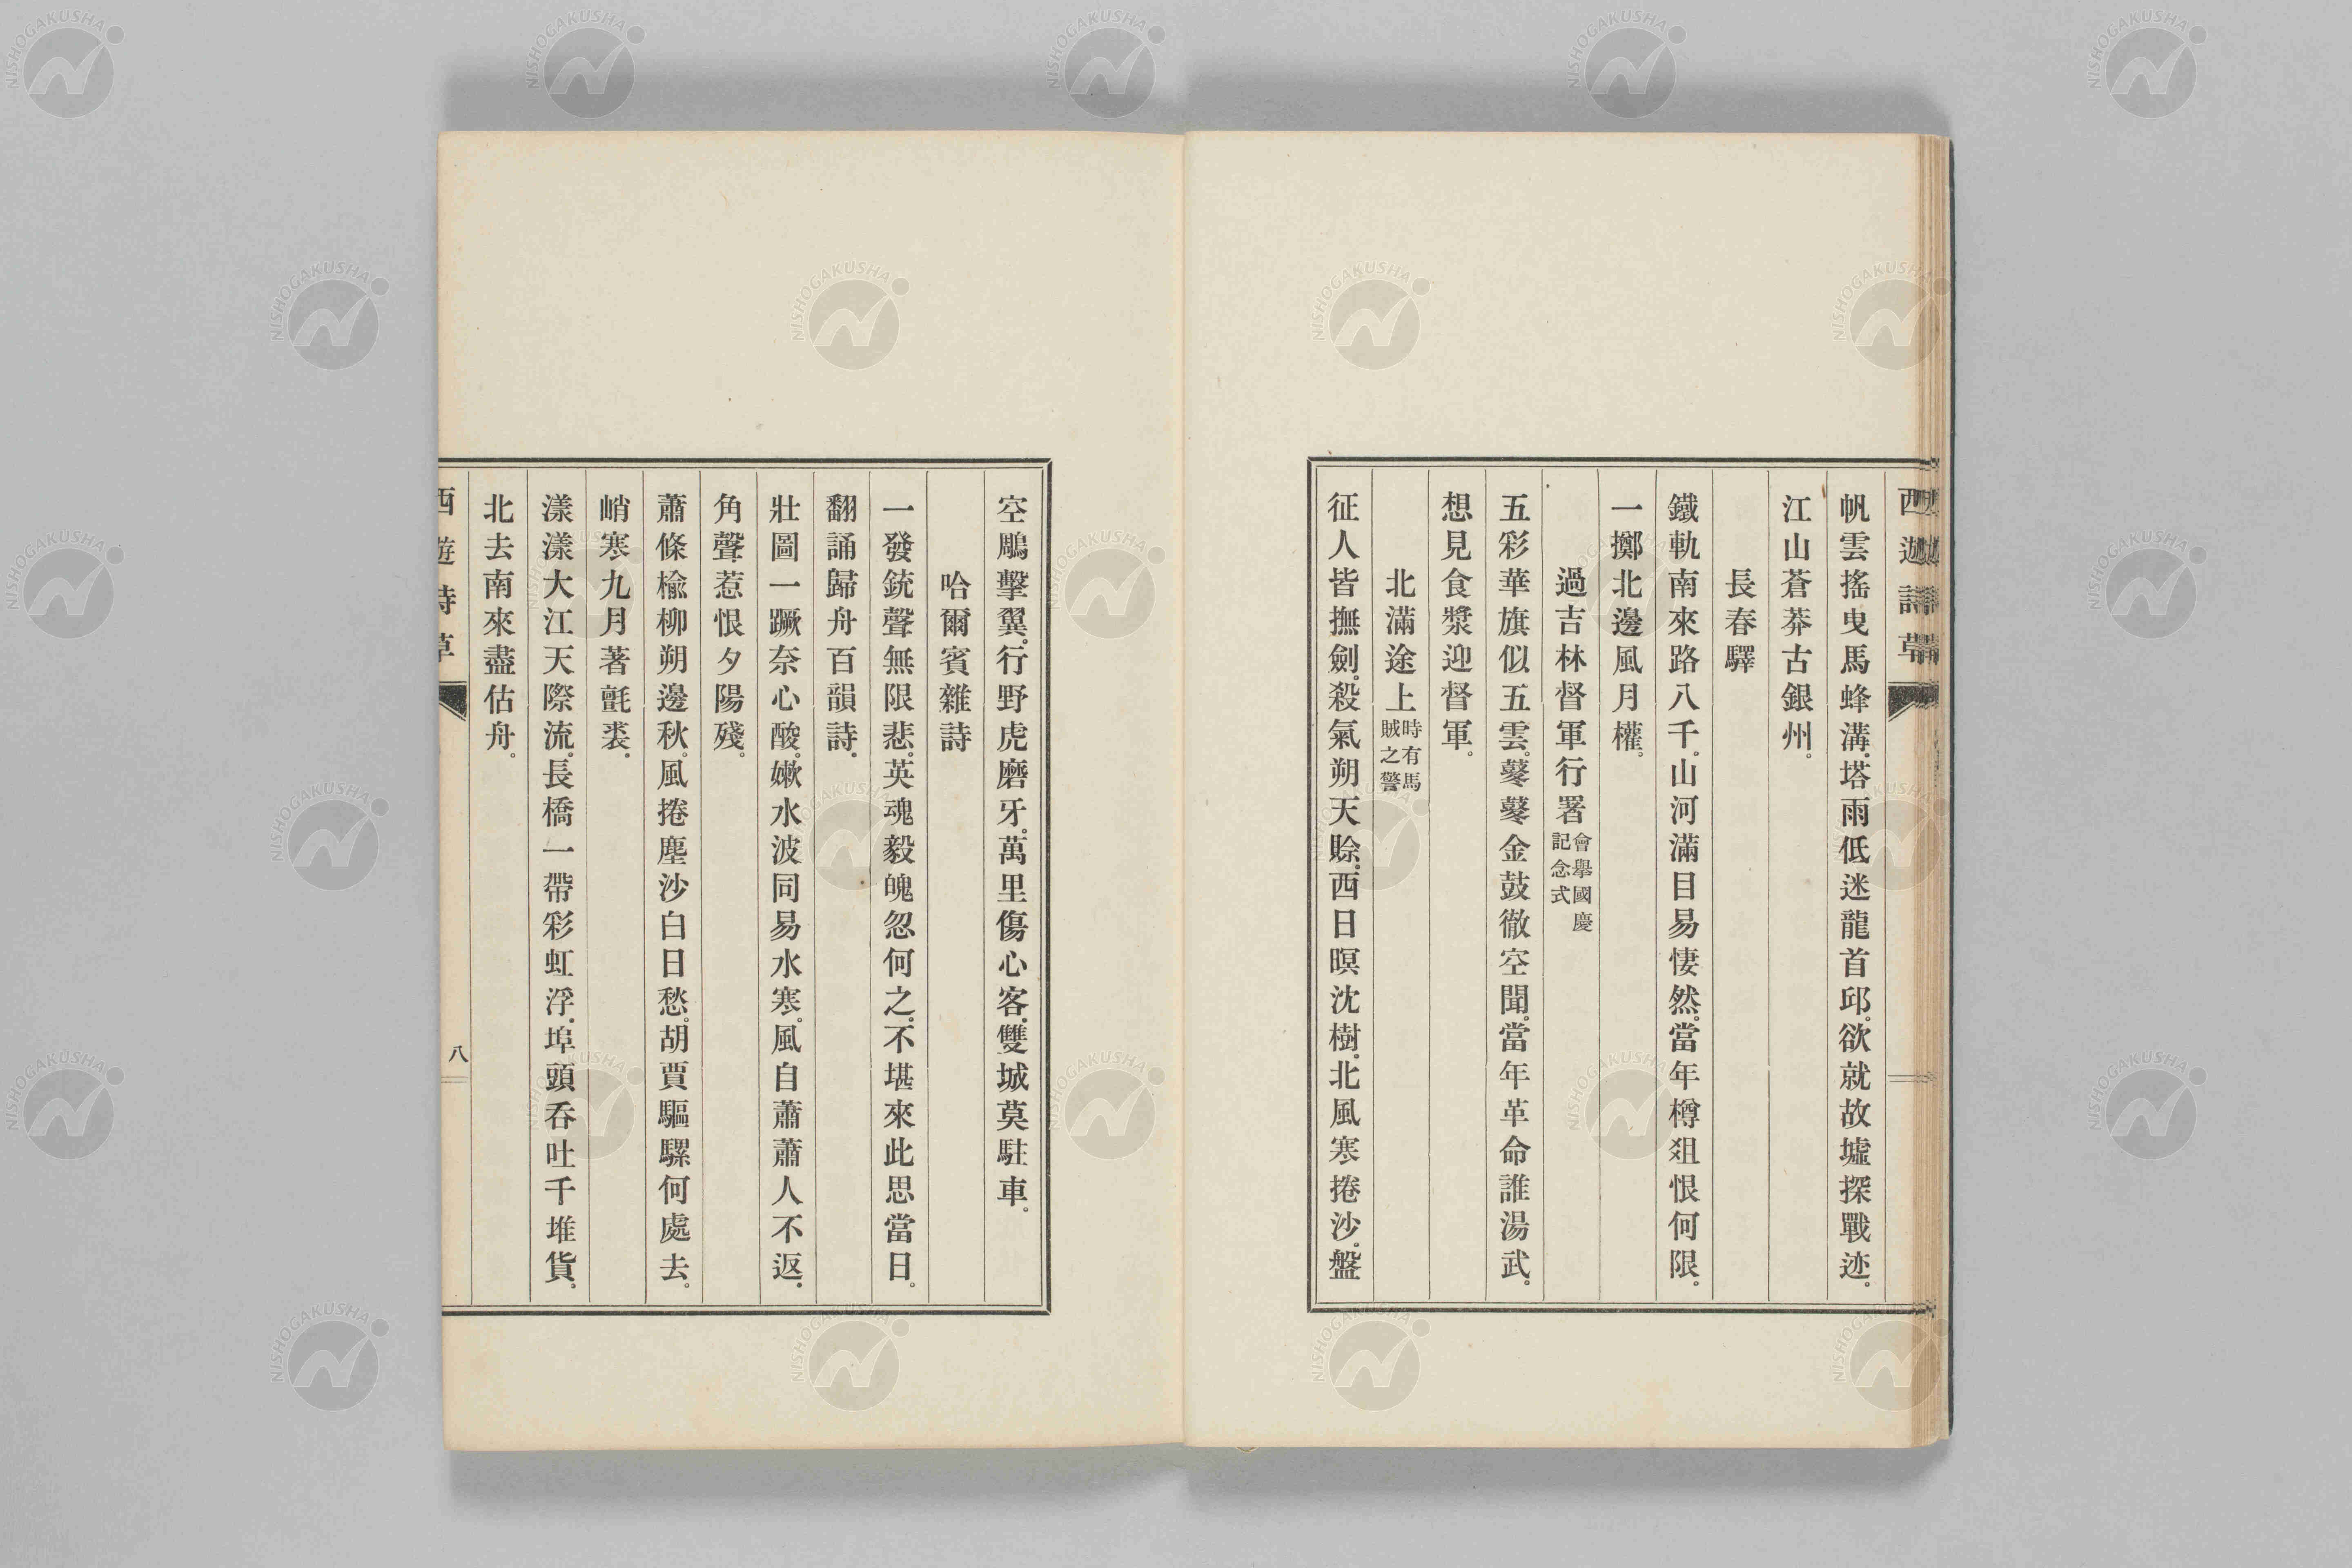 西遊詩草
帆雲搖曳馬蜂溝。塔雨低迷龍首邱。欲就故墟探戰迹。
江山蒼莽古銀州。
長春驛
鐵軌南來路八千。山河滿目易悽然。當年樽俎恨何限。
一擲北邊風月權。
過吉林督軍行署會擧國慶記念式
五彩華旗似五雲。鼕鼕金鼓徹空聞。當年革命誰湯武。
想見食漿迎督軍。
北滿途上時有馬賊之警
征人皆撫劍。殺氣朔天賖。西日暝沈樹。北風寒捲沙。盤
空鵰擊翼。行野虎磨牙。萬里傷心客。雙城莫駐車。
哈爾賓雜詩
一發銃聲無限悲。英魂毅魄忽何之。不堪來此思當日。
翻誦歸舟百韻詩。
壯圖一蹶奈心酸。嫩水波同易水寒。風自蕭蕭人不返。
角聲惹恨夕陽殘。
蕭條楡柳朔邊秋。風捲塵沙白日愁。胡賈驅騾何處去。
峭寒九月著氈裘。
漾漾大江天際流。長橋一帶彩虹浮。埠頭呑吐千堆貨。
北去南來盡估舟。
西遊詩草
八
NISHOGAKUSHA